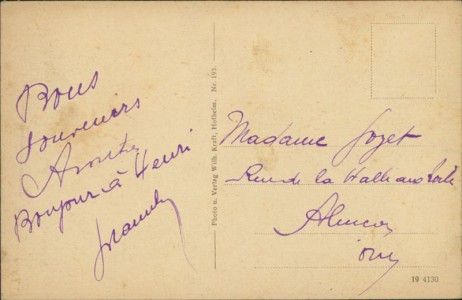 Bons
souvenirs
Bonjour à Henri
Photo u. Verlag Wilh. Kraft, Hofheim. Nr. 193.
Madame
Rue de la Halle aux Toiles
Alençon
Orne
19 4130